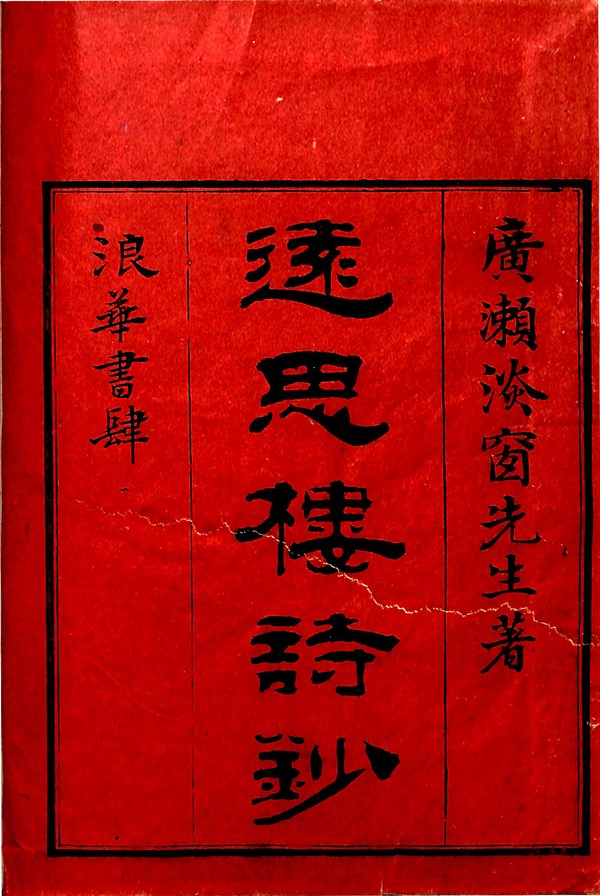 廣瀨淡窗先生著
遠思樓詩鈔
浪華書肆